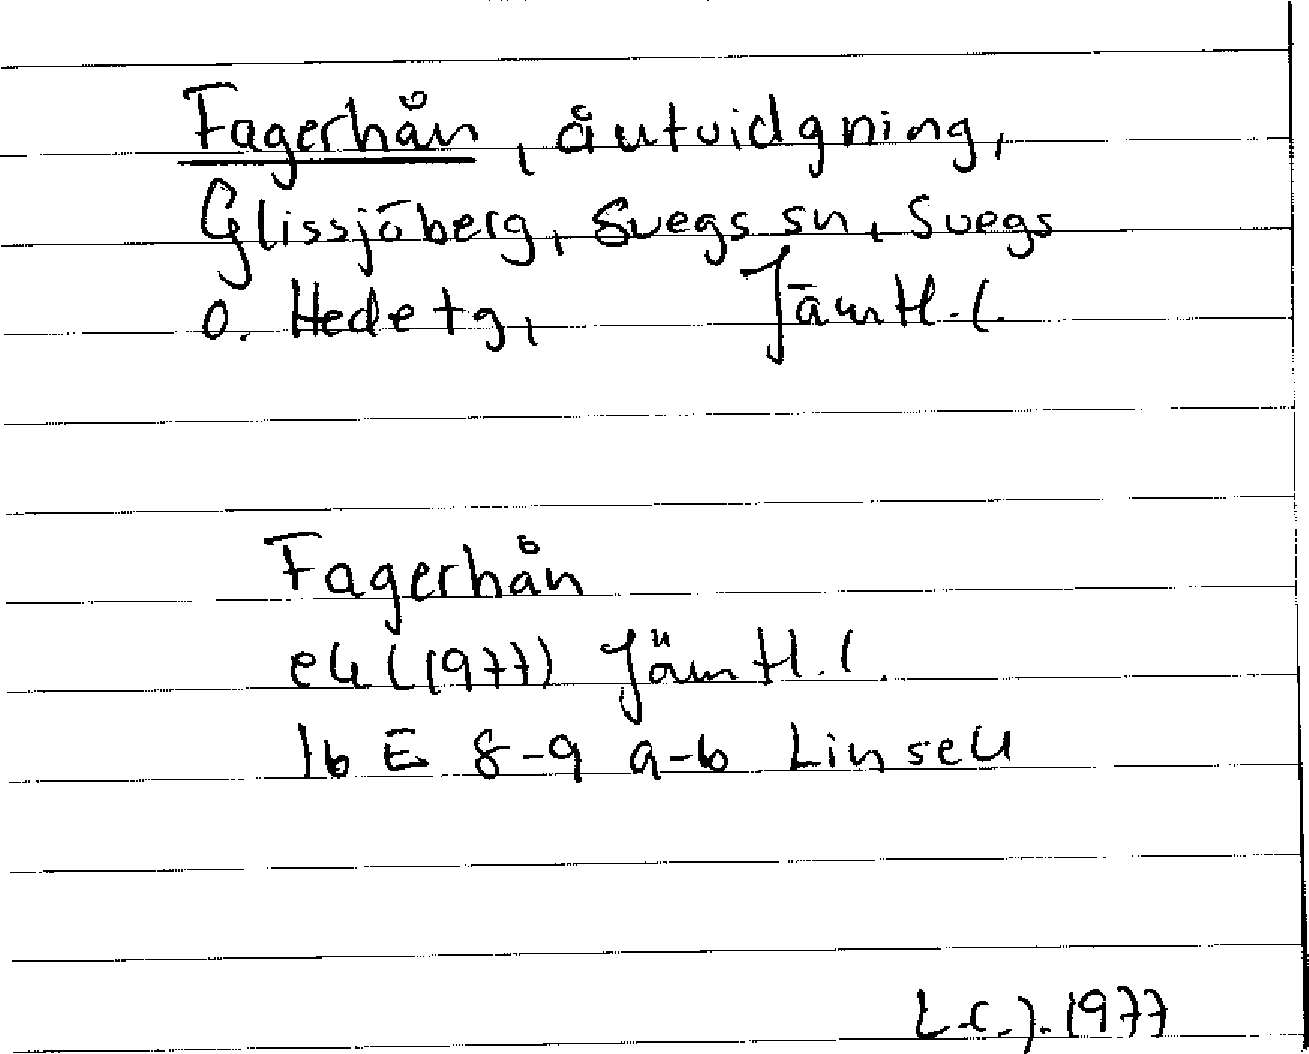 Fagerhån, åutvidgning,
Glissjöberg, Svegs sn, Svegs
o. Hede tg, Jämtl. l.
Fagerhån
ek (1977) Jämtl. l.
16 E 8-9 a-b Linsell
L.C.J. 1977